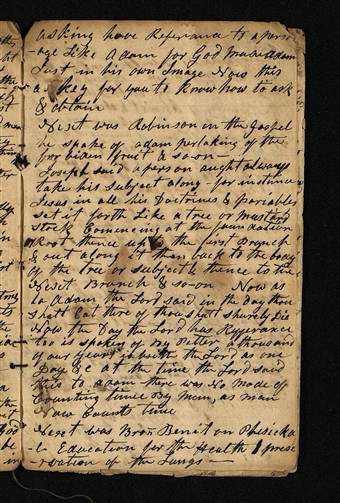 asking have Referance to a perso-
-age Like Adam for God made Adam
Just in his own Image Now this
a Key for you to Know how to ask
& obtain
Next was Robinson on the Gospel
he spake of adam pertaking of the
forbiden fruit & so on—
Joseph said a person aught always
take his subject along for instance
Jesus in all his Doctrines & Pariables
set it forth Like a tree or mustard
stock Comencing at the foundation
Root thence up to the first Branch
& out along it then back to the body
of the tree or subject & thence to the
Next Branch & so-on Now as
to Adam the Lord said in the day thou
shalt Eat there of thou shalt shurely Die
Now the Day the Lord has Refferance
too is spoken of by Petter a thousand
of our years is with the Lord as one
Day &c at the time the Lord said
this to adam there was No mode of
Counting time By man, as man
Now Counts time
Next was Bron Benit on Phisicka
l- Education for the Health & presi
-rvation of the Lungs—